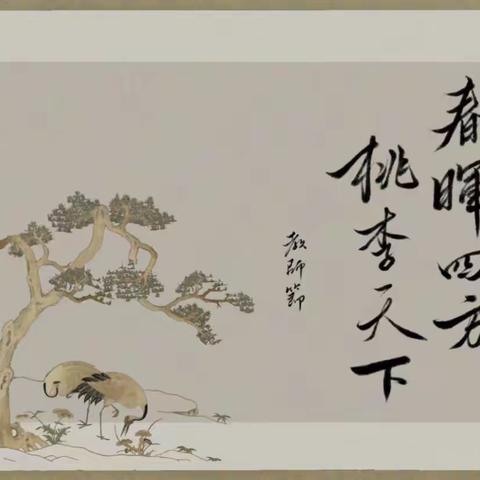 春暉四方
桃李天下
教師節